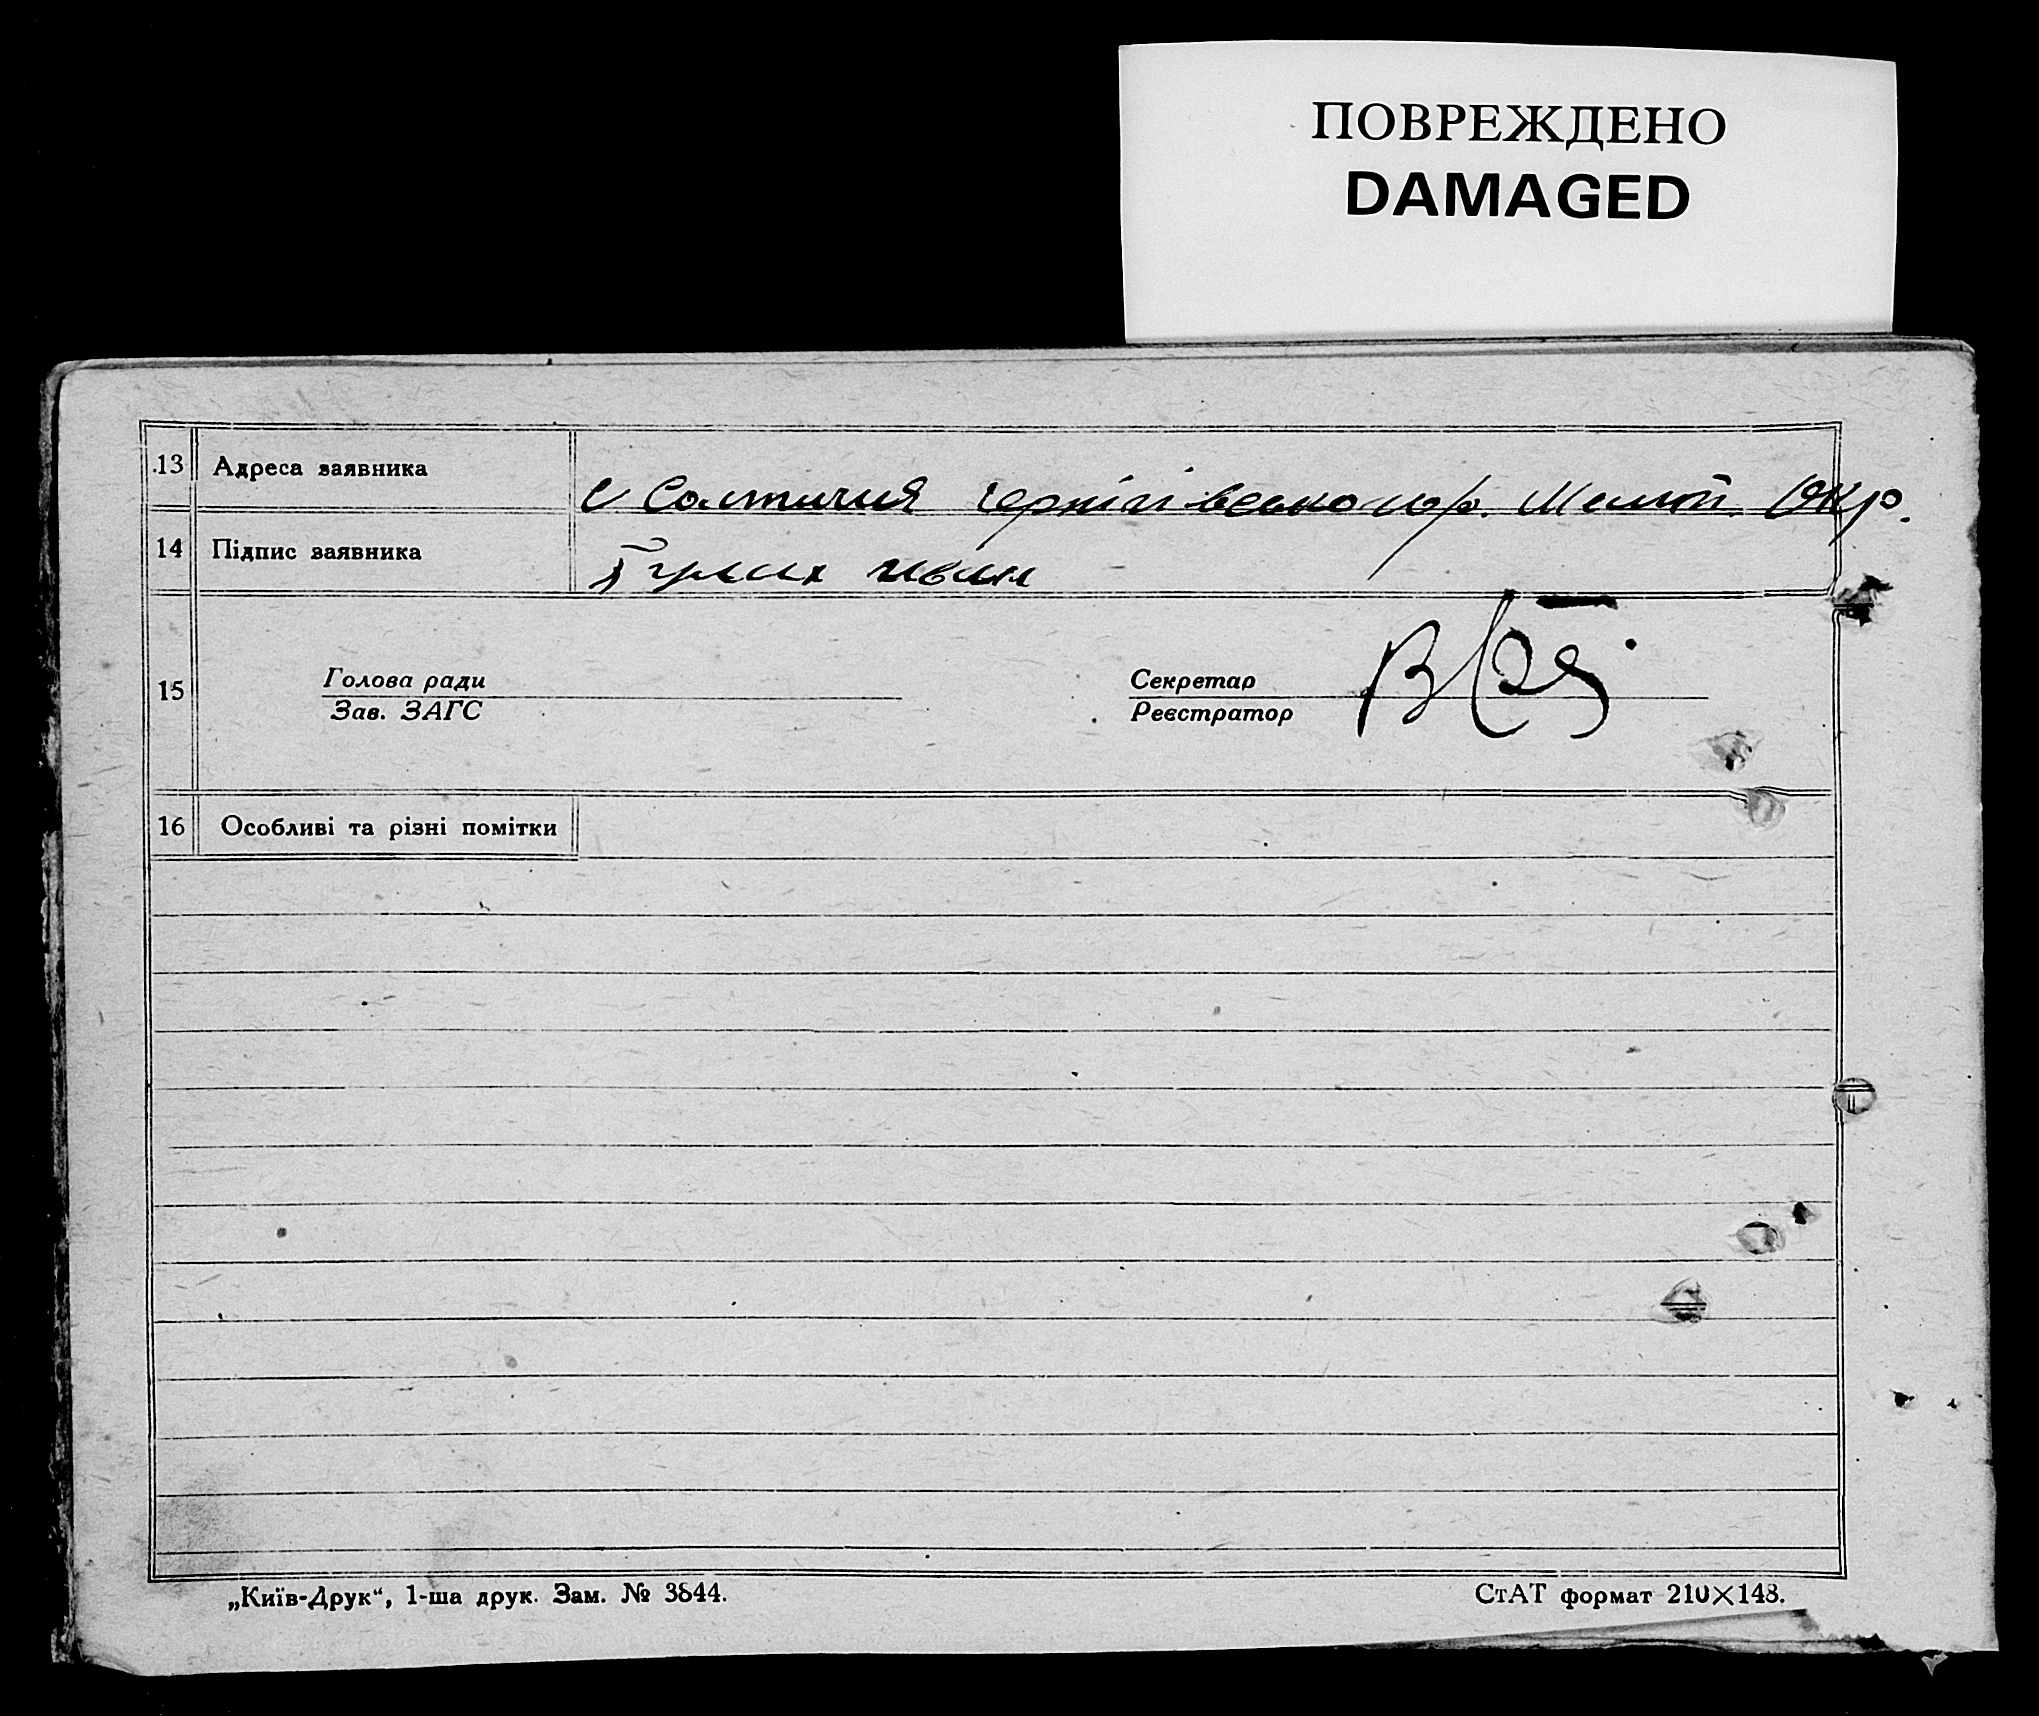 ПОВРЕЖДЕНО
DAMAGED
13 Адреса заявника с Солтичия Чернігівського р. Меліт. Окр.
14 Підпис заявника
15 Голова ради Секретар
Зав. ЗАГС Реєстратор
16 Особливі та різні помітки
„Київ-Друк“, 1-ша друк. Зам. № 3844. СтАТ формат 210×148.